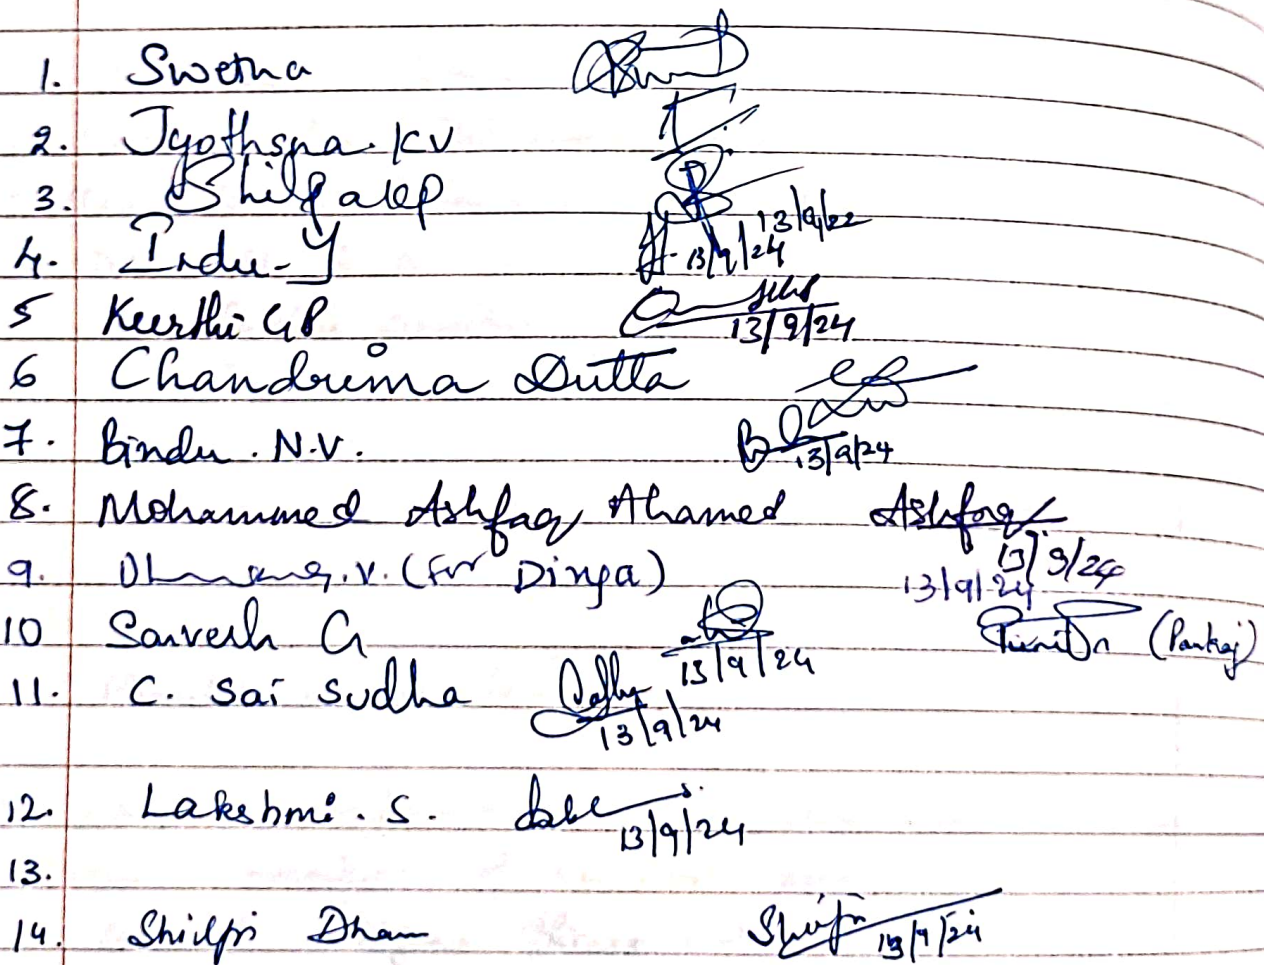 1. Swetha
2. Jyothsna. KV
3. Shilpa KP 13/9/22
4. Indu-Y 13/9/24
5 Keerthi GP 13/9/24
6 Chandrima Dutta
7. Bindu. N.V. 13/9/24
8. Mohammed Ashfaq Ahamed Ashfaq 13/9/24
9. V. (For Divya) 13/9/24
10 Sarvesh G 13/9/24 (Pankaj)
11. C. Sai Sudha 13/9/24
12. Lakshmi. S. 13/9/24
13.
14. Shilpi Dham 13/9/24